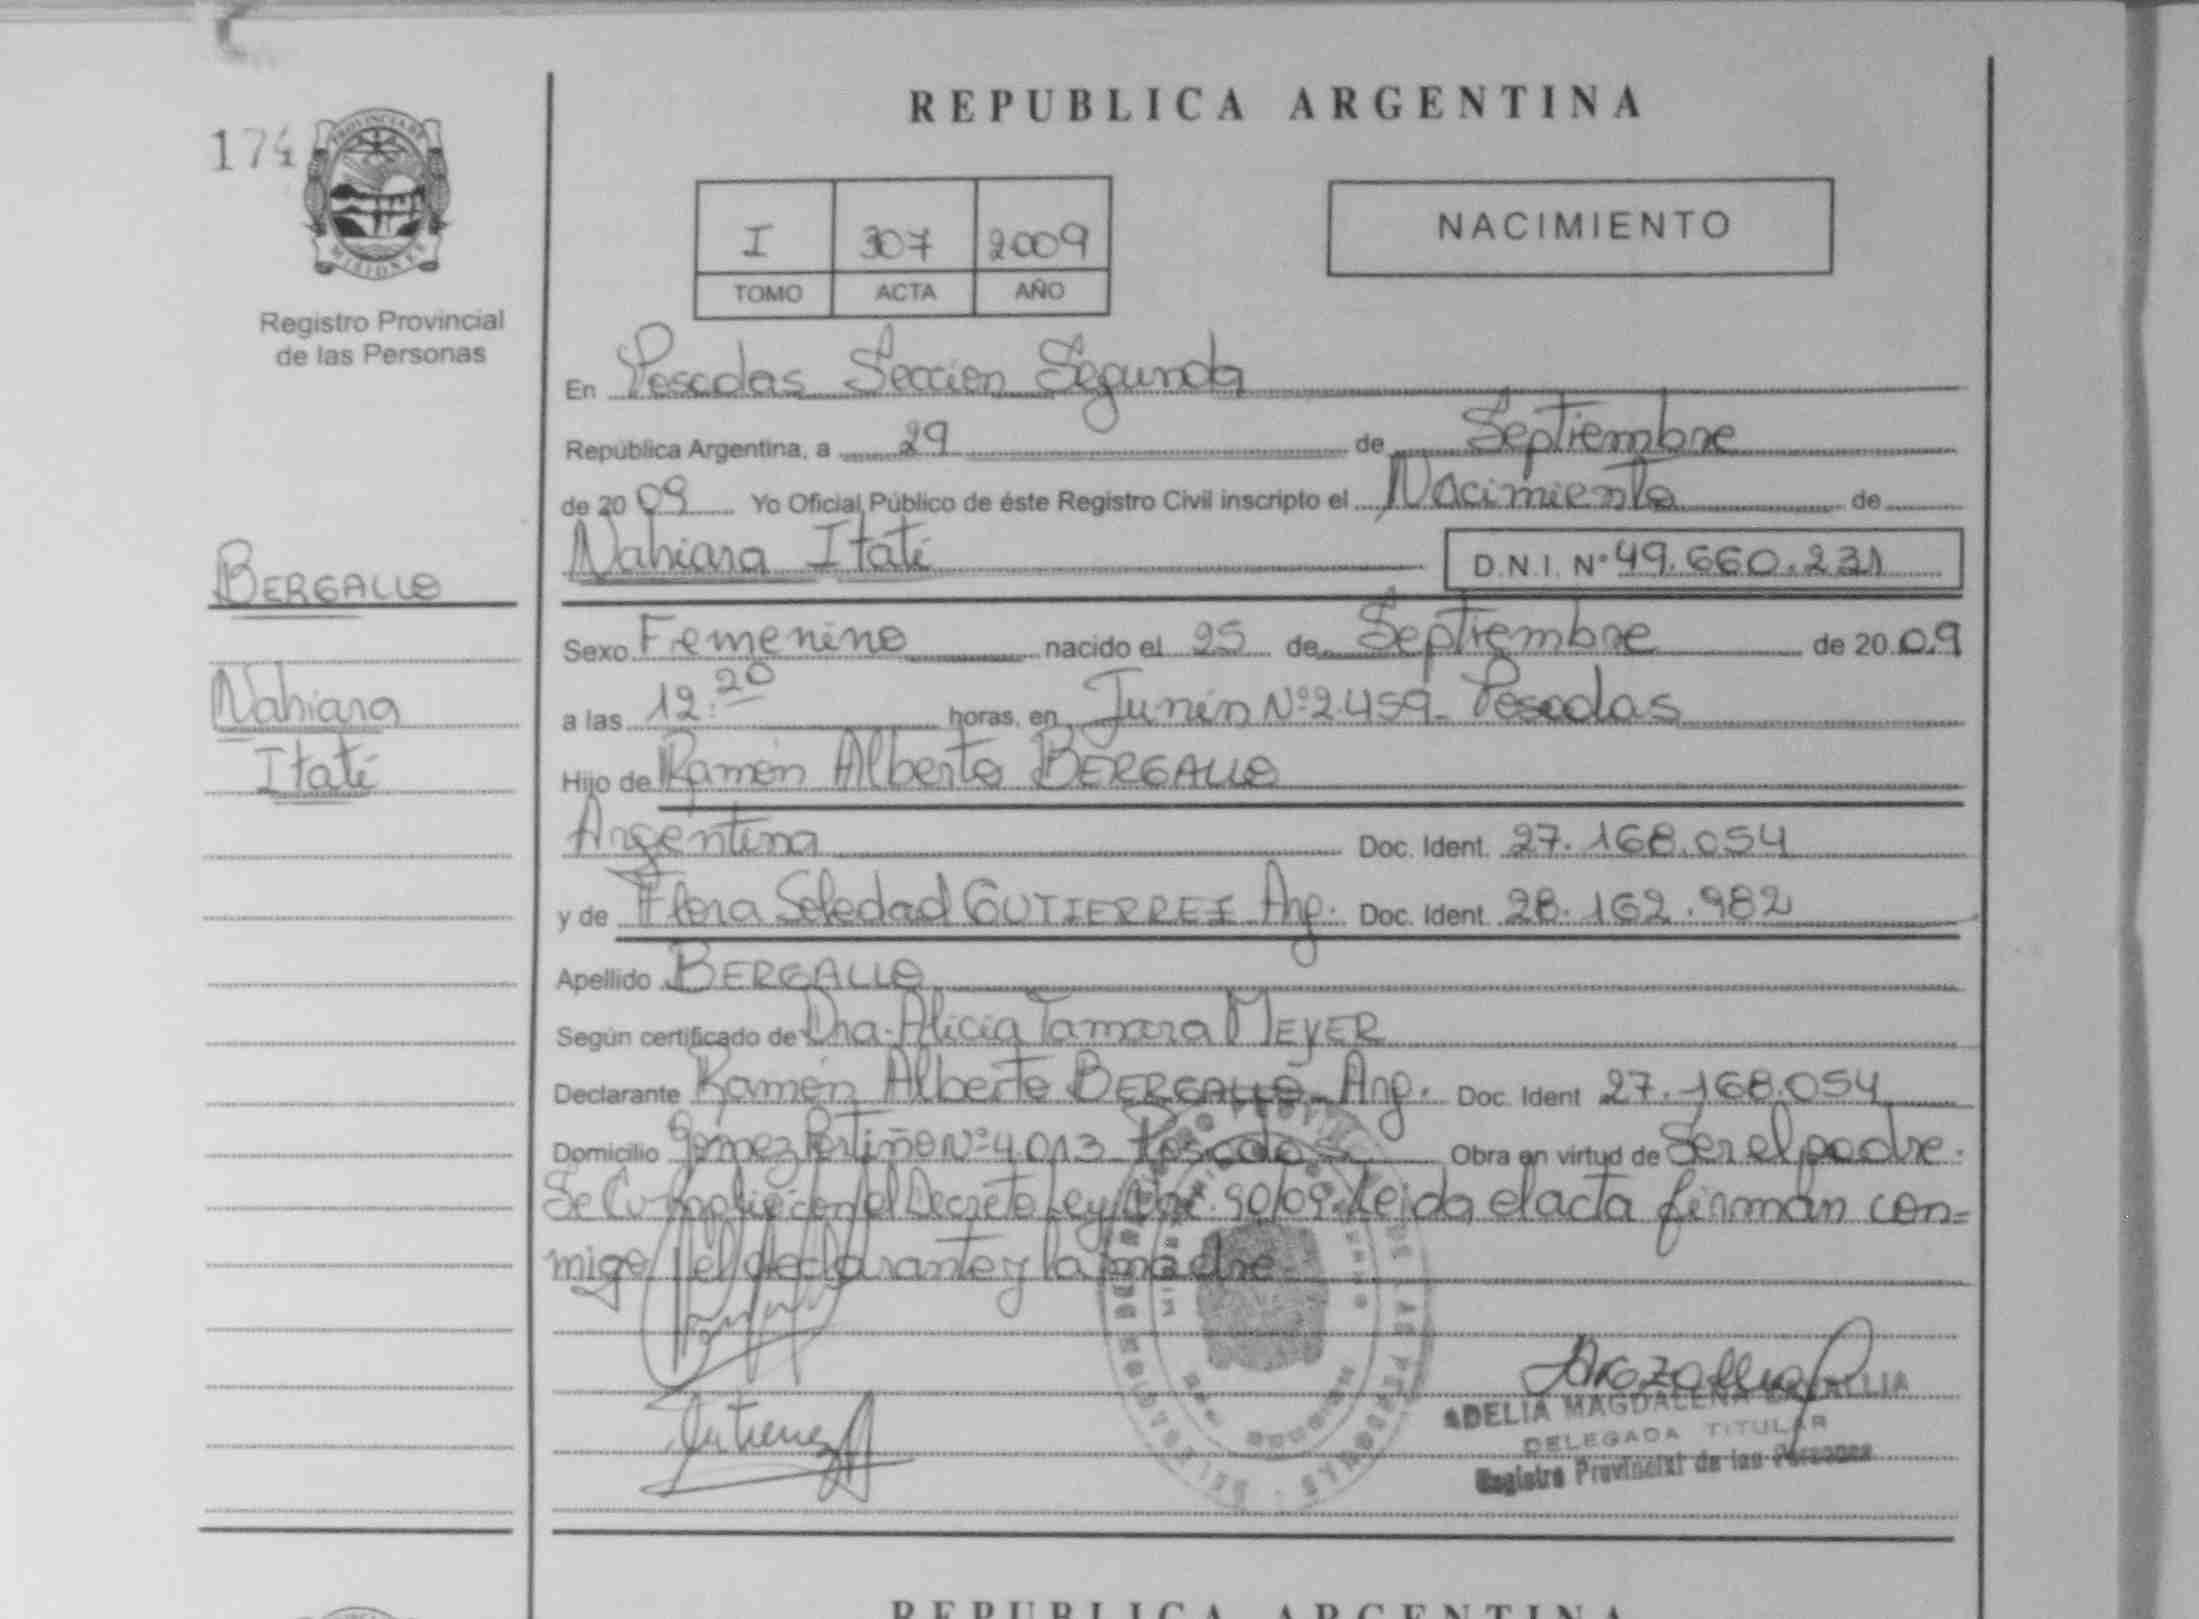 REPUBLICA ARGENTINA
174
PROVINCIA DE
MISIONES
Registro Provincial
de las Personas
I 307 2009
TOMO ACTA AÑO
NACIMIENTO
En Posadas Seccion Segunda
República Argentina, a 29 de Septiembre
de 20 09 Yo Oficial Público de éste Registro Civil inscripto el Nacimiento de
Nahiara Itatí
D.N.I. Nº 49.660.231
BERGALLO
Nahiara
Itatí
Sexo Femenino nacido el 25 de Septiembre de 20 09
a las 12:20 horas, en Junín Nº 2.459- Posadas
Hijo de Ramón Alberto BERGALLO
Argentina Doc. Ident. 27.168.054
y de Flora Soledad GUTIERREZ Arg. Doc. Ident. 28.162.982
Apellido BERGALLO
Según certificado de Dra. Alicia Tamara MEYER
Declarante Ramón Alberto BERGALLO- Arg. Doc. Ident 27.168.054
Domicilio Gómez Portiño Nº 4.013 Posadas Obra en virtud de Ser el padre.
Se Cumplió con el Decreto Ley 90/09. Leida el acta firman con=
migo el declarante y la madre
Gutierrez
ADELIA MAGDALENA
DELEGADA TITULAR
Registro Provincial de las Personas
REPUBLICA ARGENTINA